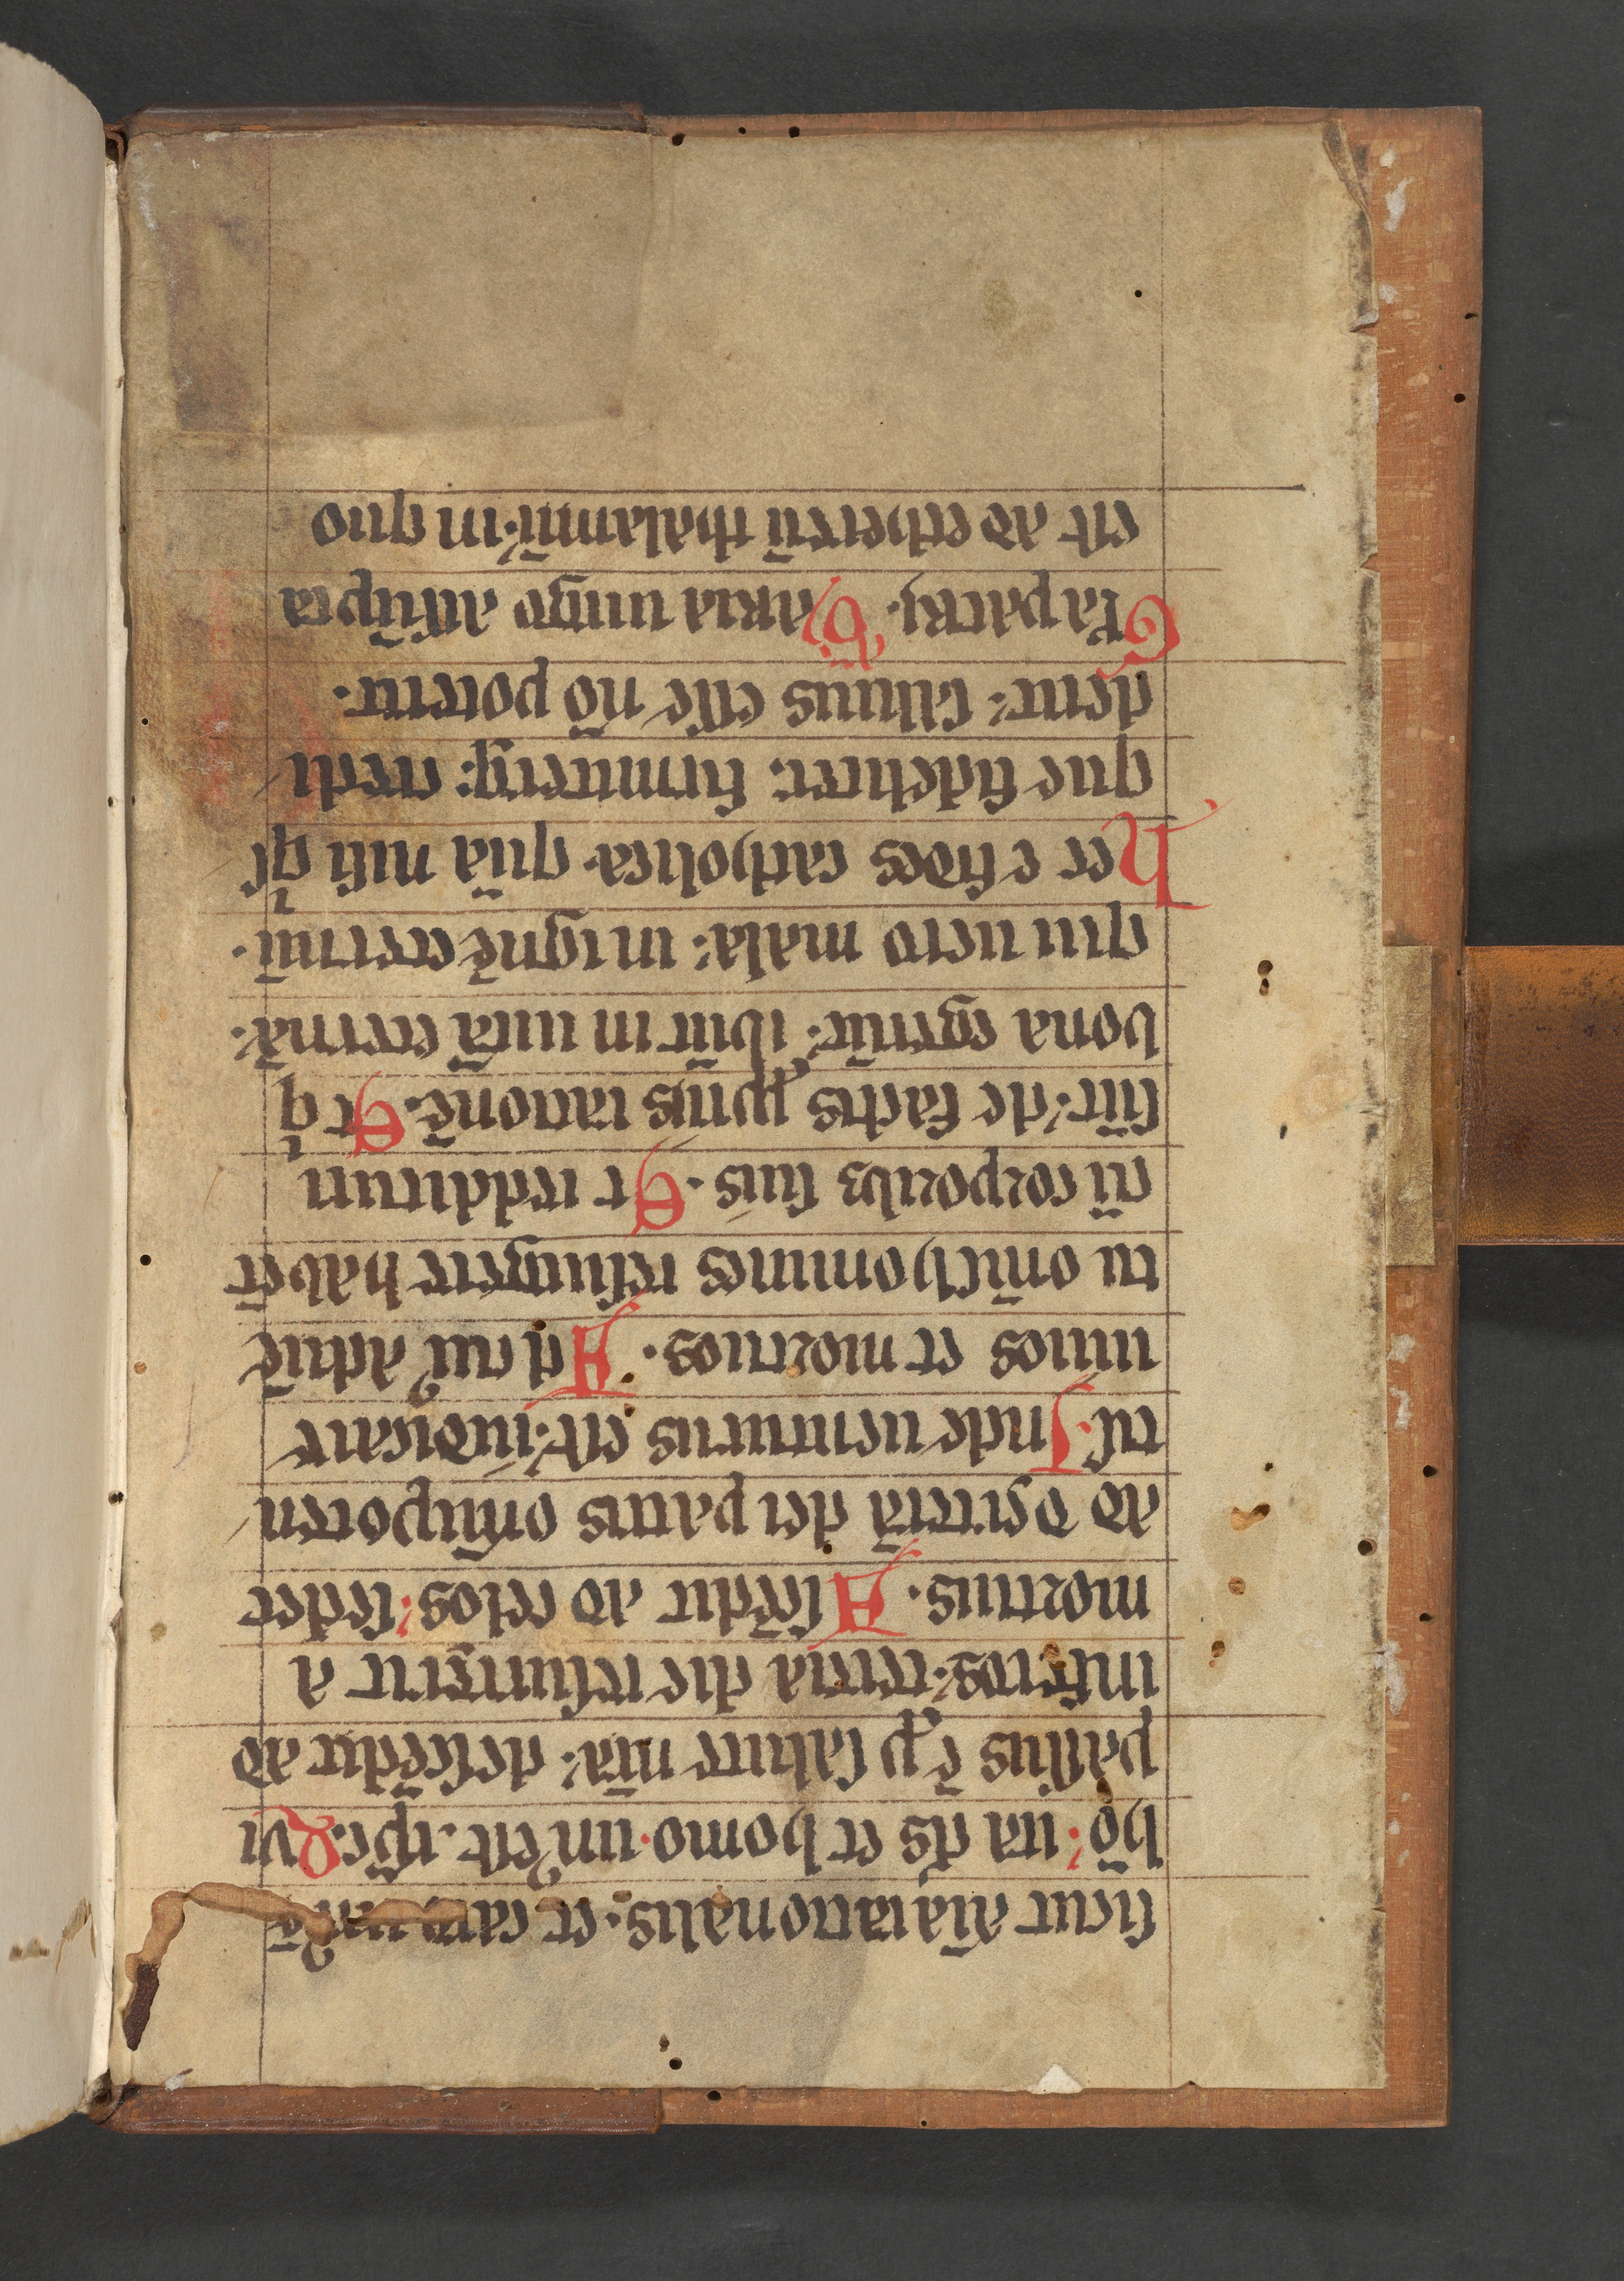 sicut aīa rationalis: et caro unꝰ ē
hō: ita dꝰs et homo unꝰ est xp̄c. Qvi
passus ē p̱ salute nr̄a: descēdit ad
inferos: tercia die resurrexit a
mortuis. Ascēdit ad celos: sedet
ad dexterā dei patris om̄ipoten
tis. Inde uenturus est: iudicare
uiuos et mortuos. Ad cuiꝰ aduē
tū om̄s homines resurgere habēt
cū corporibꝫ suis. Et reddituri
sūt: de factis p̱priis rationē. Et q
bona egerūt: ibūt in uitā eternā.
qui uero mala: in ignē eternū.
Hec ē fides catholica. quā nisi qs
que fideliter: firmiterqꝫ credi
derit: saluus esse nō poterit.
Glꝛīa patri. Maria uirgo assūpta
est ad ethereū thalamū. in quo